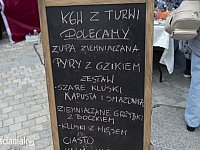 KGW Z TURWI
POLECAMY
ZUPA ZIEMNIACZANA
PYRY Z GZIKIEM
ZESTAW
-SZARE KLUSKI
KAPUSTA I SMAŻONKA
ZIEMNIACZANE GRZYBKI
Z BOCZKIEM
-KLUSKI Z MIĘSEM
-CIASTO